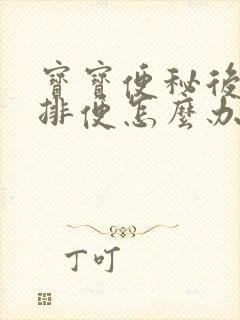 寶寶便秘後
排便怎麼办
丁叮